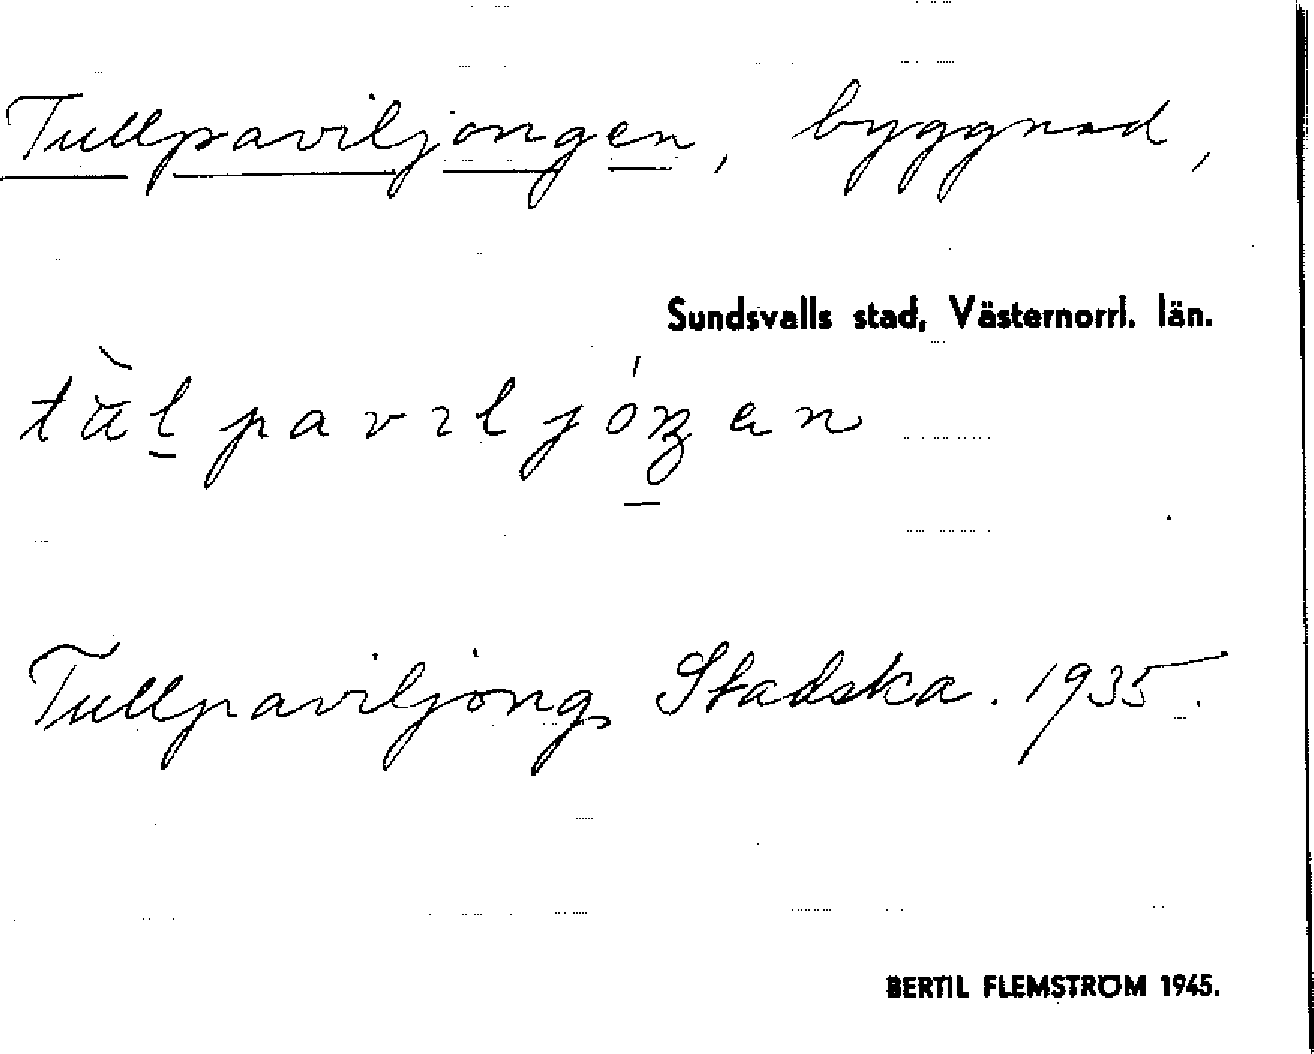 Tullpaviljongen, byggnad,
Sundsvalls stad, Västernorrl. län.
Tullpaviljong Stadska. 1935.
BERTIL FLEMSTRÖM 1945.